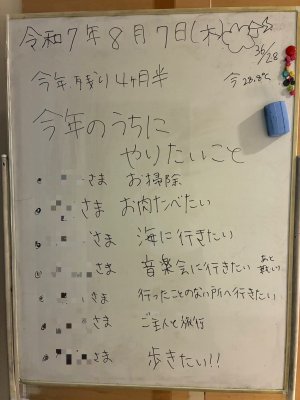 令和7年8月7日(木)
36/28
今年 残り4ヶ月半
今 28.8℃
今年のうちに
やりたいこと
さま お掃除
さま お肉たべたい
さま 海に行きたい
さま 音楽会に行きたい
さま 行ったことのない所へ行きたい
さま ご主人と旅行
さま 歩きたい!!